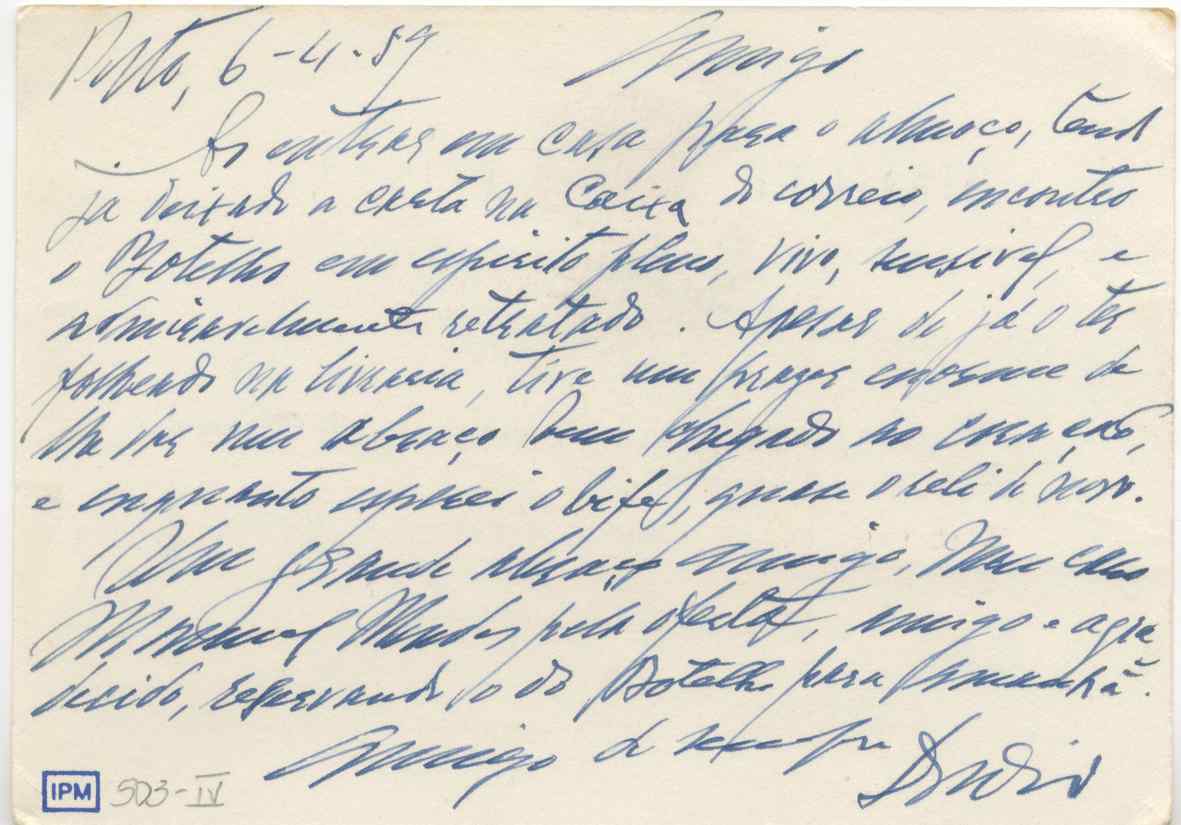 Porto, 6-4-59 Amigo
Ao entrar em casa para o almoço, tendo
já deixado a carta na caixa do correio, encontro
o Botelho em espirito pleno, vivo, sensivel, e
admiravelmente retratado. Apesar de já o ter
folheado na livraria, tive um prazer enorme de
lhe dar um abraço bem chegado ao coração,
e enquanto esperei o bife, quase o reli de novo.
Um grande abraço amigo, meu caro
Manuel Mendes pela oferta, amigo e agra
decido, reservando o do Botelho para amanhã.
Amigo de sempre
IPM 503-IV